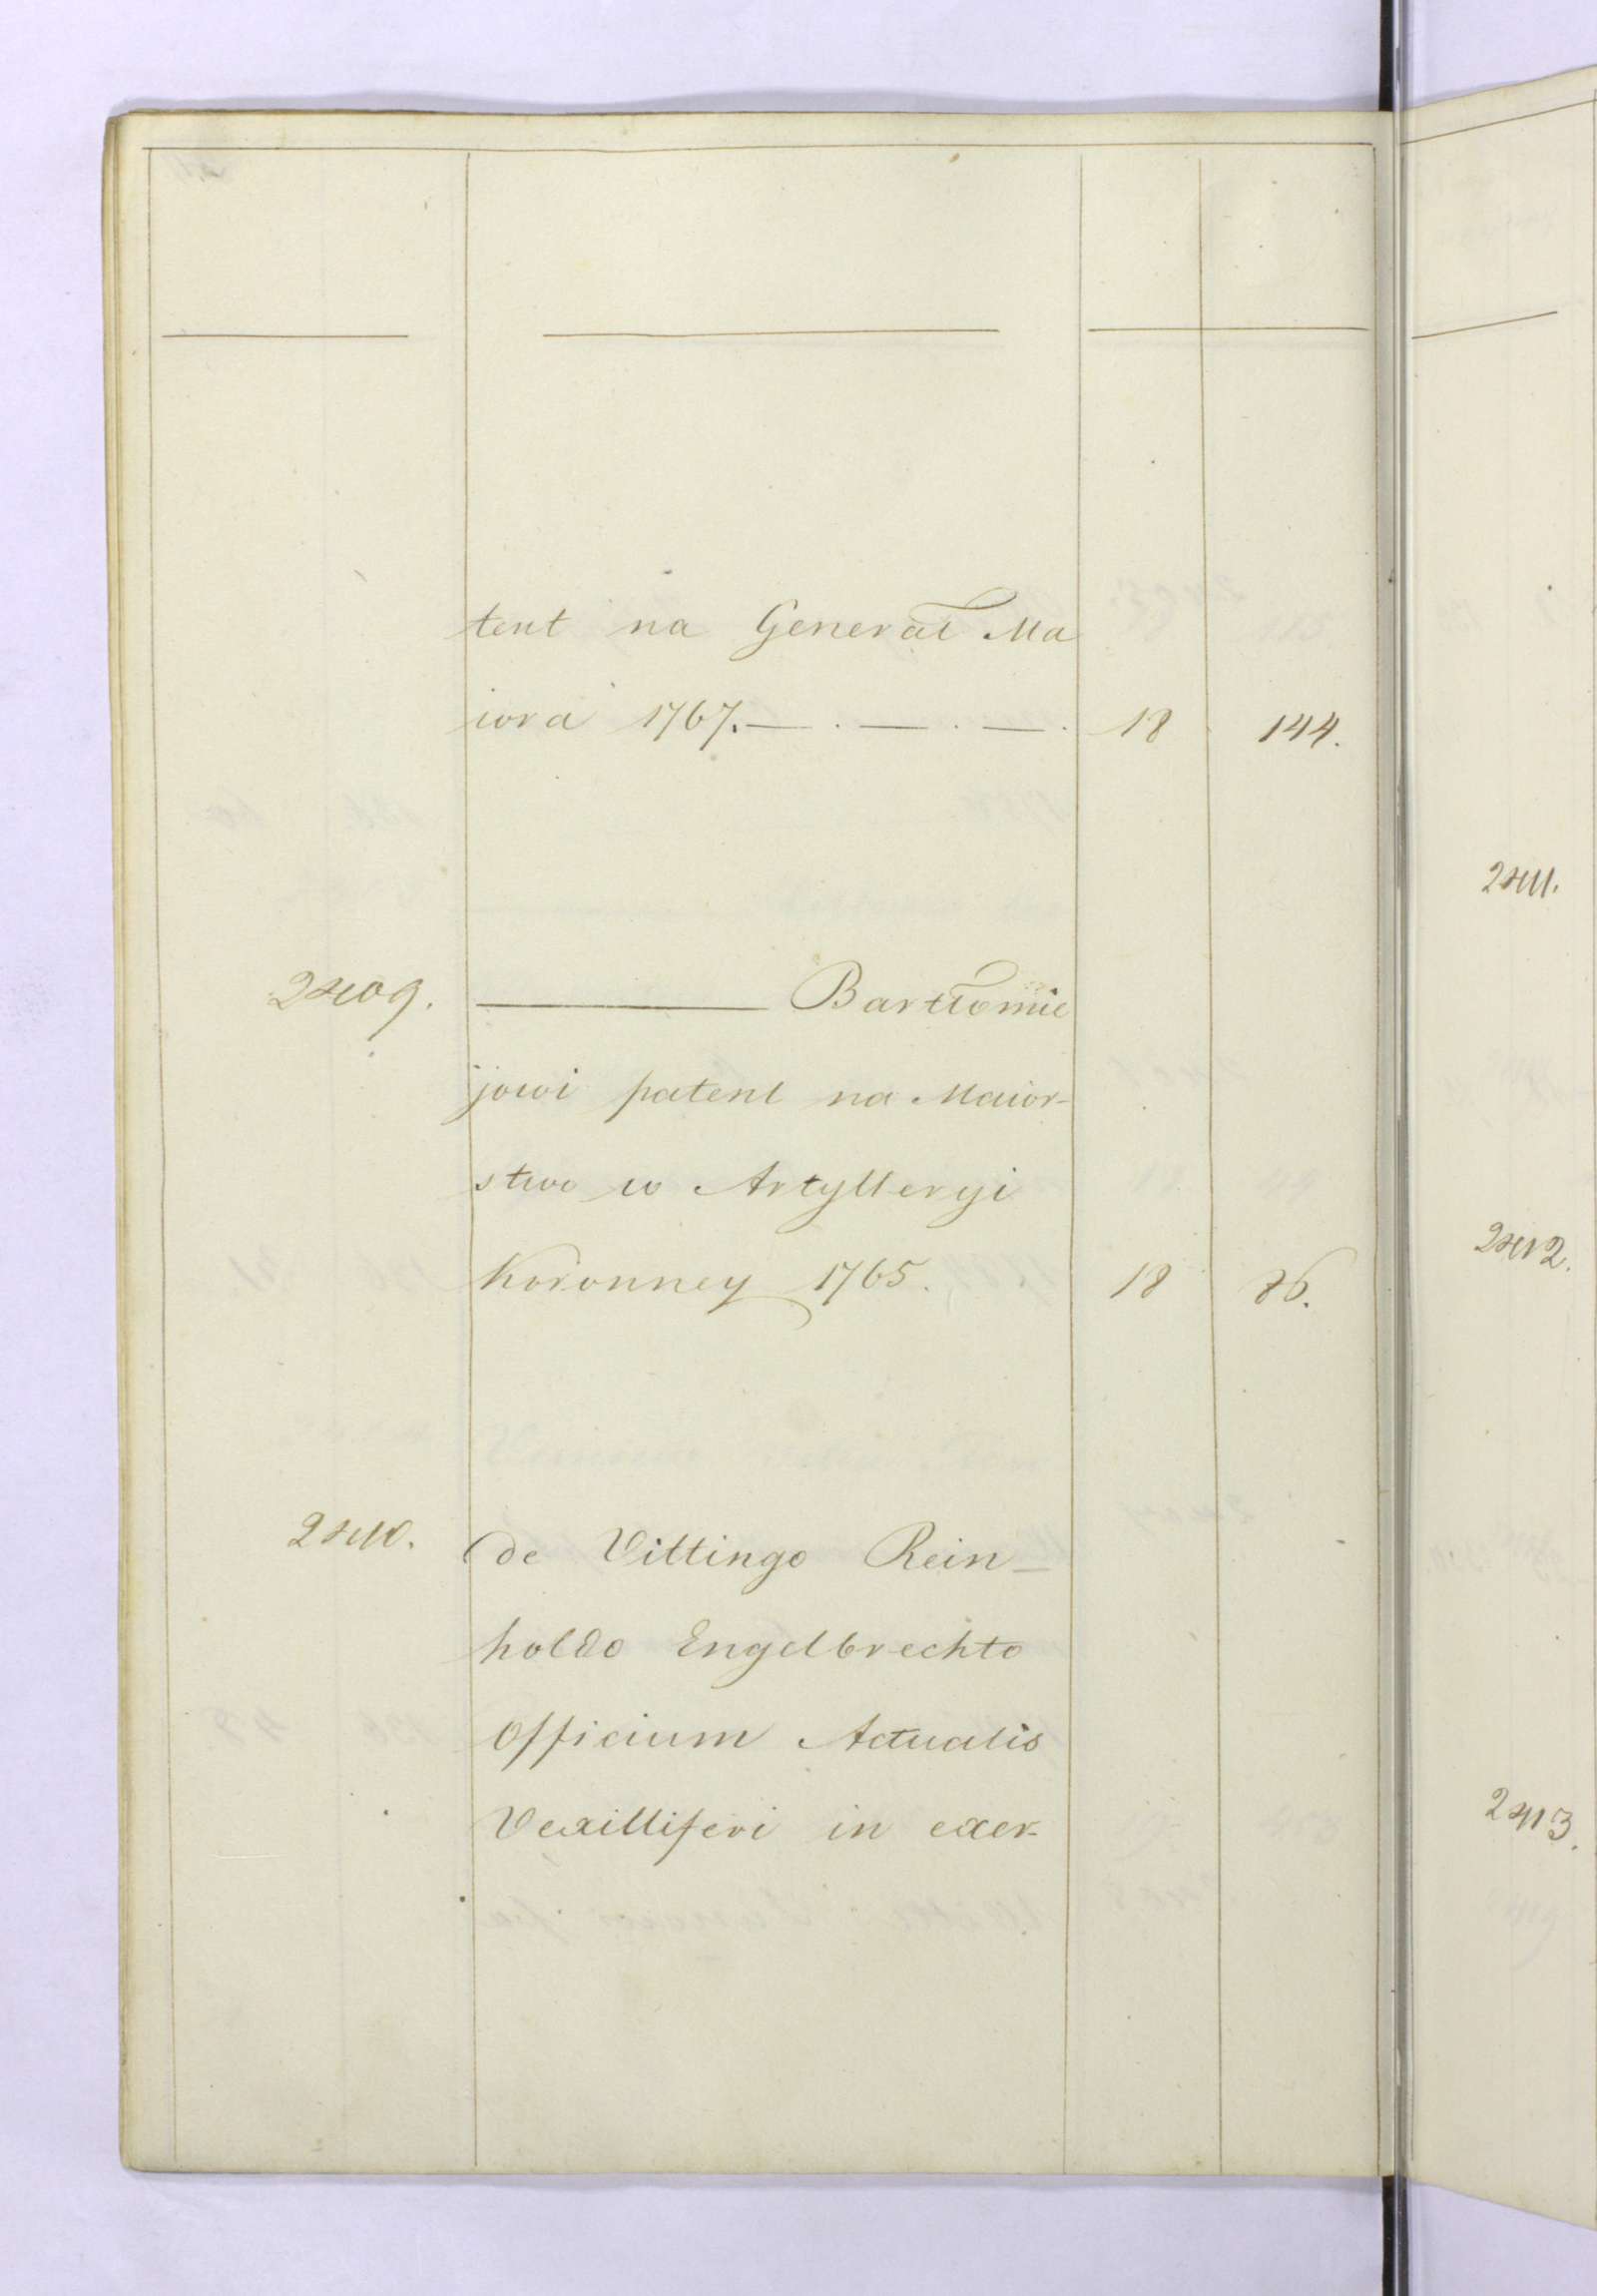 tent na Generał Ma
iora 1767. — . — . — . 18 144.
2409. ——— Bartłomie
jowi patent na Maior-
stwo w Artylleryi
Koronney 1765. 18 86.
2410. de Vittingo Rein-
holdo Engelbrechto
Officium Actualis
Vexilliferi in exer-
2411.
2412.
2413.